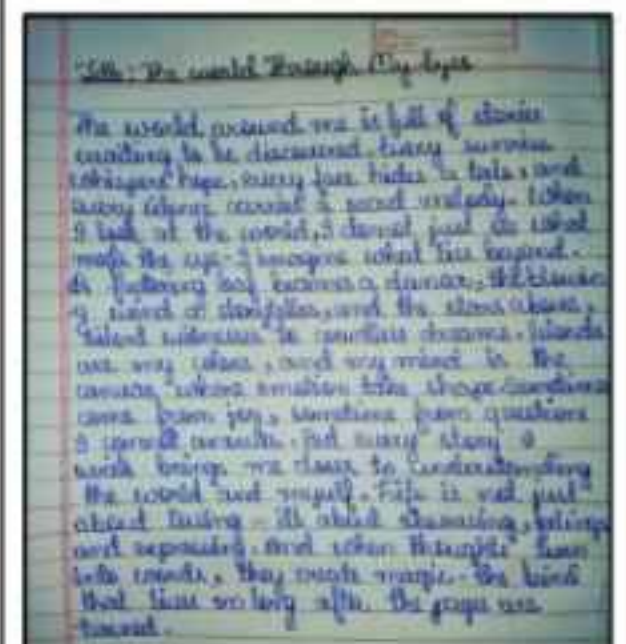 Title: The world Through My Eyes
The world around me is full of stories
waiting to be discovered. Every sunrise
whispers hope, every face hides a tale, and
every silence carries a secret melody. When
I look at the world, I do not just see what
meets the eye - I imagine what lies beyond.
A fluttering leaf becomes a dancer, the
a wind a storyteller, and the stars above,
silent witnesses to countless dreams. Words
are my colors, and my mind is the
canvas where emotion take shape. Sometimes
come from joy, sometimes from questions
I cannot answer. But every story I
weave brings me closer to understanding
the world and myself. Life is not just
about living - it's about observing, feeling
and expressing. And when thoughts turn
into words, they create magic - the kind
that lives on long after the pages are
turned.